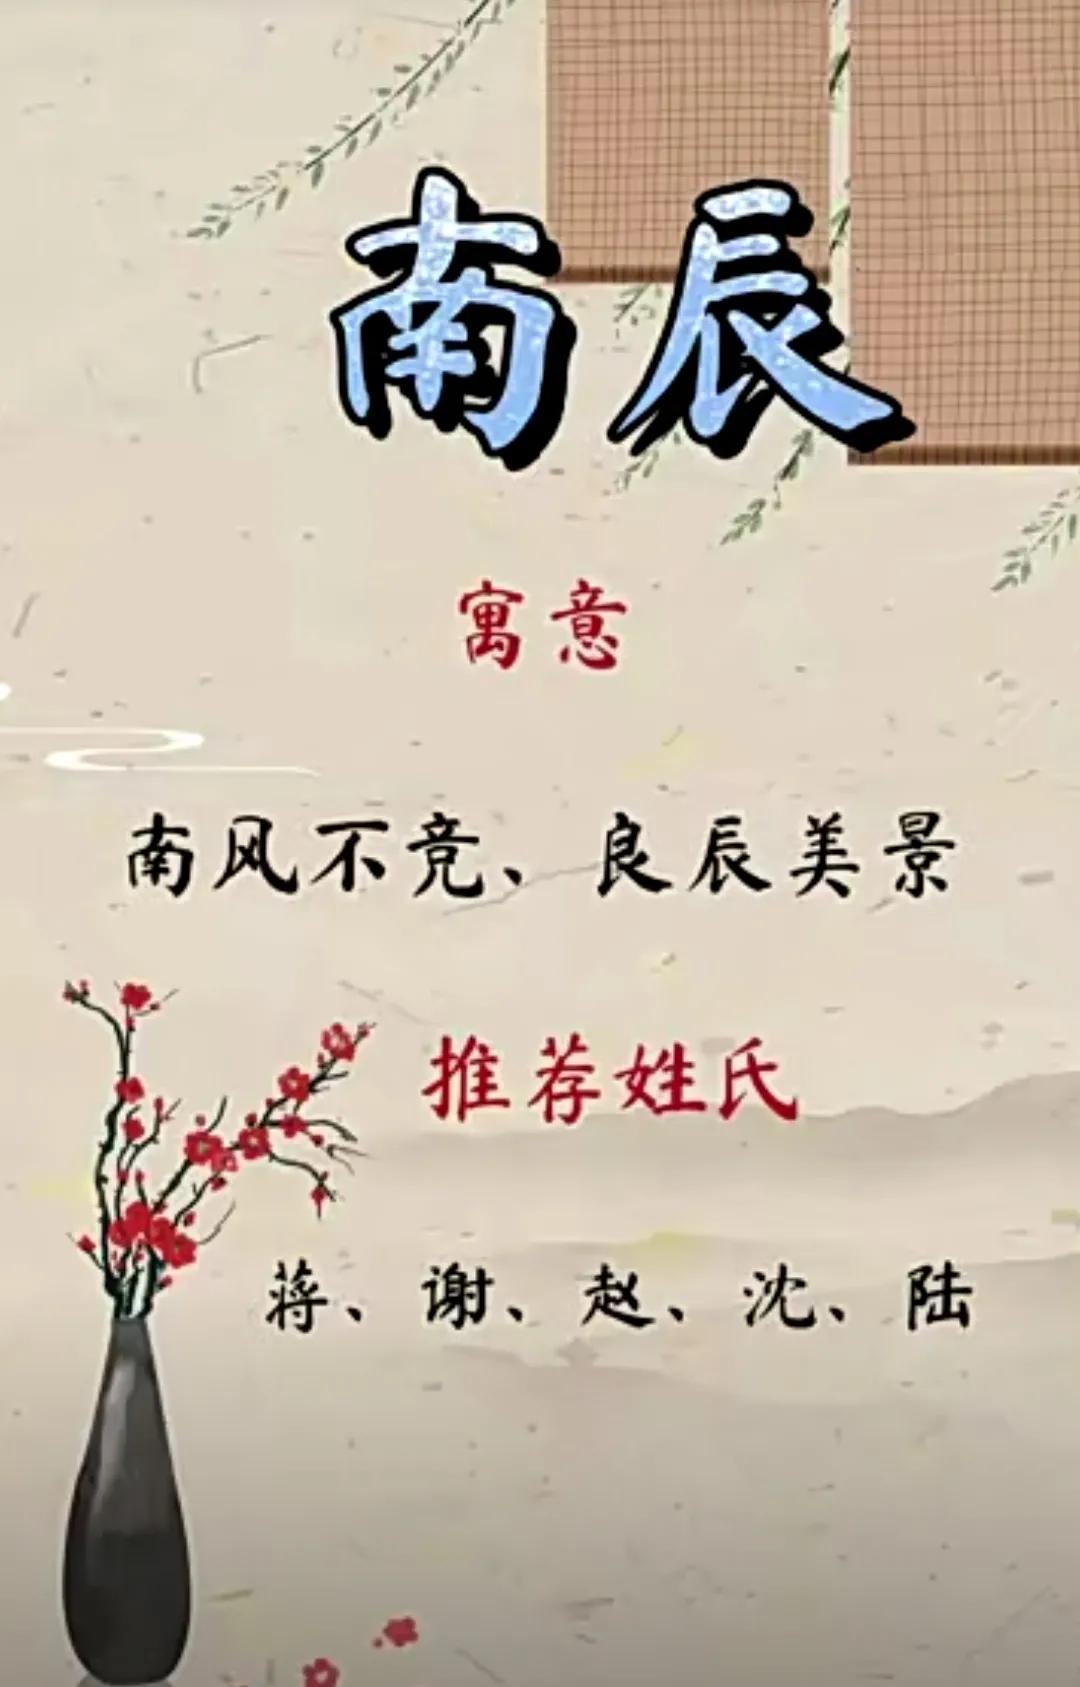 南辰
寓意
南风不竞、良辰美景
推荐姓氏
蒋、谢、赵、沈、陆